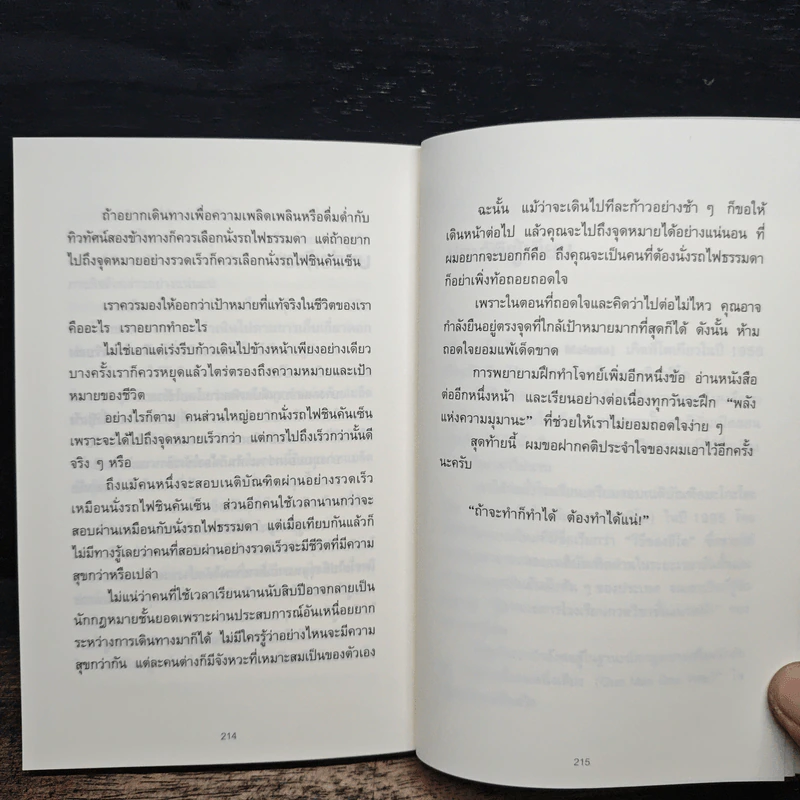 ถ้าอยากเดินทางเพื่อความเพลิดเพลินหรือดื่มด่ำกับ
ทิวทัศน์สองข้างทางก็ควรเลือกนั่งรถไฟธรรมดา แต่ถ้าอยาก
ไปถึงจุดหมายอย่างรวดเร็วก็ควรเลือกนั่งรถไฟชินคันเซ็น
เราควรมองให้ออกว่าเป้าหมายที่แท้จริงในชีวิตของเรา
คืออะไร เราอยากทำอะไร
ไม่ใช่เอาแต่เร่งรีบก้าวเดินไปข้างหน้าเพียงอย่างเดียว
บางครั้งเราก็ควรหยุดแล้วไตร่ตรองถึงความหมายและเป้า
หมายของชีวิต
อย่างไรก็ตาม คนส่วนใหญ่อยากนั่งรถไฟชินคันเซ็น
เพราะจะได้ไปถึงจุดหมายเร็วกว่า แต่การไปถึงเร็วกว่านั้นดี
จริง ๆ หรือ
ถึงแม้คนหนึ่งจะสอบเนติบัณฑิตผ่านอย่างรวดเร็ว
เหมือนนั่งรถไฟชินคันเซ็น ส่วนอีกคนใช้เวลานานกว่าจะ
สอบผ่านเหมือนกับนั่งรถไฟธรรมดา แต่เมื่อเทียบกันแล้วก็
ไม่มีทางรู้เลยว่าคนที่สอบผ่านอย่างรวดเร็วจะมีชีวิตที่มีความ
สุขกว่าหรือเปล่า
ไม่แน่ว่าคนที่ใช้เวลาเรียนนานนับสิบปีอาจกลายเป็น
นักกฎหมายชั้นยอดเพราะผ่านประสบการณ์อันเหนื่อยยาก
ระหว่างการเดินทางมาก็ได้ ไม่มีใครรู้ว่าอย่างไหนจะมีความ
สุขกว่ากัน แต่ละคนต่างก็มีจังหวะที่เหมาะสมเป็นของตัวเอง
214
ฉะนั้น แม้ว่าจะเดินไปทีละก้าวอย่างช้า ๆ ก็ขอให้
เดินหน้าต่อไป แล้วคุณจะไปถึงจุดหมายได้อย่างแน่นอน ที่
ผมอยากจะบอกก็คือ ถึงคุณจะเป็นคนที่ต้องนั่งรถไฟธรรมดา
ก็อย่าเพิ่งท้อถอยถอดใจ
เพราะในตอนที่ถอดใจและคิดว่าไปต่อไม่ไหว คุณอาจ
กำลังยืนอยู่ตรงจุดที่ใกล้เป้าหมายมากที่สุดก็ได้ ดังนั้น ห้าม
ถอดใจยอมแพ้เด็ดขาด
การพยายามฝึกทำโจทย์เพิ่มอีกหนึ่งข้อ อ่านหนังสือ
ต่ออีกหนึ่งหน้า และเรียนอย่างต่อเนื่องทุกวันจะฝึก “พลัง
แห่งความมุมานะ” ที่ช่วยให้เราไม่ยอมถอดใจง่าย ๆ
สุดท้ายนี้ ผมขอฝากคติประจำใจของผมเอาไว้อีกครั้ง
นะครับ
“ถ้าจะทำก็ทำได้ ต้องทำได้แน่!”
215